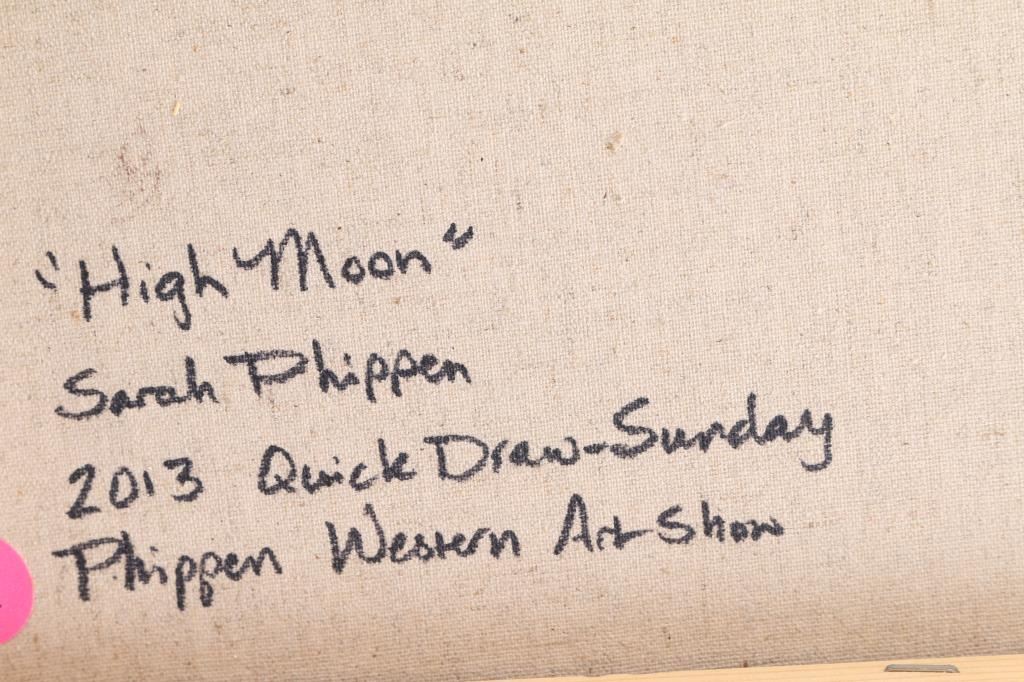 "High Moon"
Sarah Phippen
2013 Quick Draw-Sunday
Phippen Western Art Show